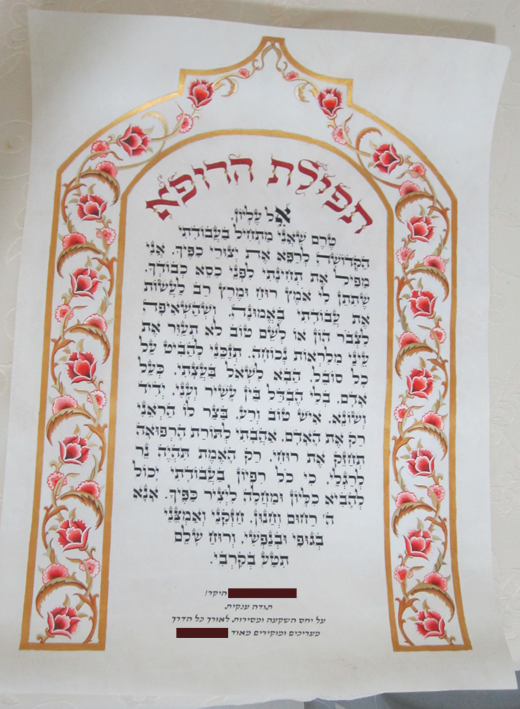 תפילת הרופא
אֵל עֶלְיוֹן,
טֶרֶם שֶׁאֲנִי מַתְחִיל בַּעֲבוֹדָתִי
הַקְּדוֹשָׁה לְרַפֵּא אֶת יְצוּרֵי כַפֶּיךָ, אֲנִי
מַפִּיל אֶת תְּחִינָתִי לִפְנֵי כִסֵּא כְבוֹדֶךָ,
שֶׁתִּתֵּן לִי אֹמֶץ רוּחַ וּמֶרֶץ רַב לַעֲשׂוֹת
אֶת עֲבוֹדָתִי בֶּאֱמוּנָה, וְשֶׁהַשְּׁאִיפָה
לִצְבֹּר הוֹן אוֹ לְשֵׁם טוֹב לֹא תְעַוֵּר אֶת
עֵינַי מִלִּרְאוֹת נְכוֹחָה. תְּזַכֵּנִי לְהַבִּיט עַל
כָּל סוֹבֵל, הַבָּא לִשְׁאֹל בַּעֲצָתִי, כְּעַל
אָדָם, בְּלִי הֶבְדֵּל בֵּין עָשִׁיר וְעָנִי, יָדִיד
וְשׂוֹנֵא, אִישׁ טוֹב וָרָע, בַּצַּר לוֹ הַרְאֵנִי
רַק אֶת הָאָדָם. אַהֲבָתִי לְתוֹרַת הָרְפוּאָה
תְּחַזֵּק אֶת רוּחִי, רַק הָאֱמֶת תִּהְיֶה נֵר
לְרַגְלַי, כִּי כֹל רִפְיוֹן בַּעֲבוֹדָתִי יָכוֹל
לְהָבִיא כִּלָּיוֹן וּמַחֲלָה לִיצִיר כַּפֶּיךָ. אָנָּא
ה' רַחוּם וְחַנּוּן, חַזְּקֵנִי וְאַמְּצֵנִי
בְּגוּפִי וּבְנַפְשִׁי, וְרוּחַ שָׁלֵם
תִּטַּע בְּקִרְבִּי.
היקר!
תודה ענקית,
על יחס השקעה ומסירות לאורך כל הדרך
מעריכים ומוקירים מאוד